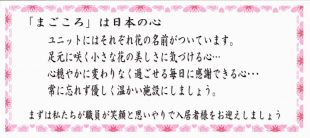 「まごころ」は日本の心
ユニットにはそれぞれ花の名前がついています。
足元に咲く小さな花の美しさに気づける心…
心穏やかに変わりなく過ごせる毎日に感謝できる心…
常に忘れず優しく温かい施設にしましょう。
まずは私たちが職員が笑顔と思いやりで入居者様をお迎えしましょう